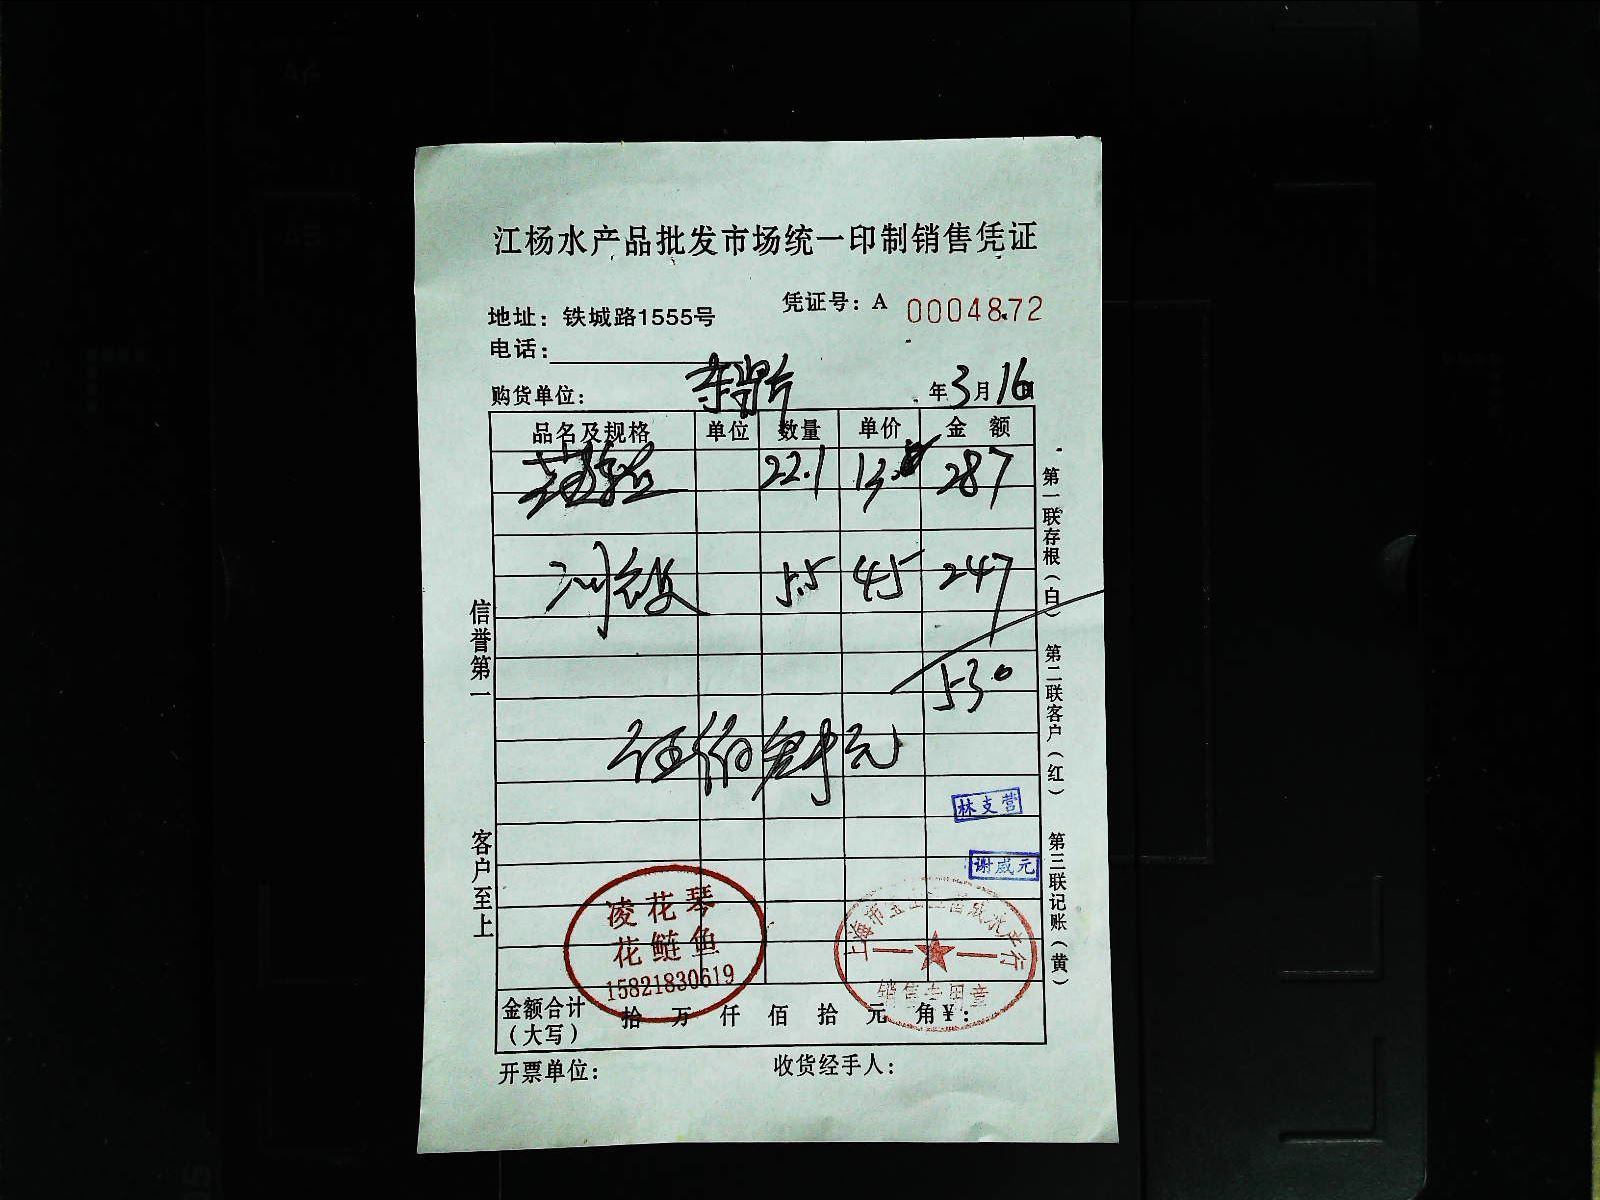 江杨水产品批发市场统一印制销售凭证
凭证号：A 0004872
地址：铁城路1555号
电话：
购货单位：
年3月16日
品名及规格 单位 数量 单价 金额
22.1 13 287
5.5 45 247
530
伍佰叁十元
林支营
谢威元
凌花琴
花鲢鱼
15821830619
水产行
销售专用章
金额合计（大写） 拾 万 仟 佰 拾 元 角¥：
开票单位： 收货经手人：
信誉第一 客户至上
第一联存根（白） 第二联客户（红） 第三联记账（黄）